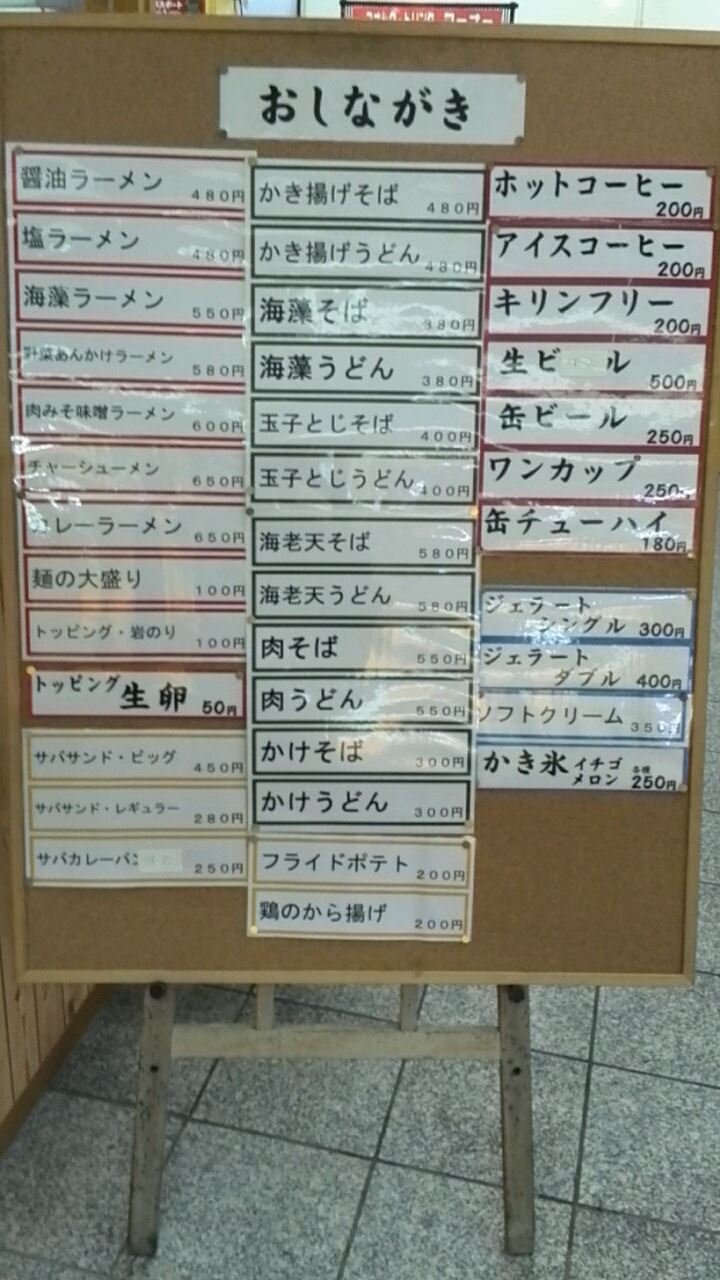 おしながき
醤油ラーメン 480円
塩ラーメン 480円
海藻ラーメン 550円
野菜あんかけラーメン 580円
肉みそ味噌ラーメン 600円
チャーシューメン 650円
カレーラーメン 650円
麺の大盛り 100円
トッピング・岩のり 100円
トッピング 生卵 50円
サバサンド・ビッグ 450円
サバサンド・レギュラー 280円
サバカレーパン 250円
かき揚げそば 480円
かき揚げうどん 480円
海藻そば 380円
海藻うどん 380円
玉子とじそば 400円
玉子とじうどん 400円
海老天そば 580円
海老天うどん 580円
肉そば 550円
肉うどん 550円
かけそば 300円
かけうどん 300円
フライドポテト 200円
鶏のから揚げ 200円
ホットコーヒー
200円
アイスコーヒー
200円
キリンフリー
200円
生ビール
500円
缶ビール
250円
ワンカップ
250円
缶チューハイ
180円
ジェラート
シングル 300円
ジェラート
ダブル 400円
ソフトクリーム 350円
かき氷 イチゴ 各種
メロン 250円